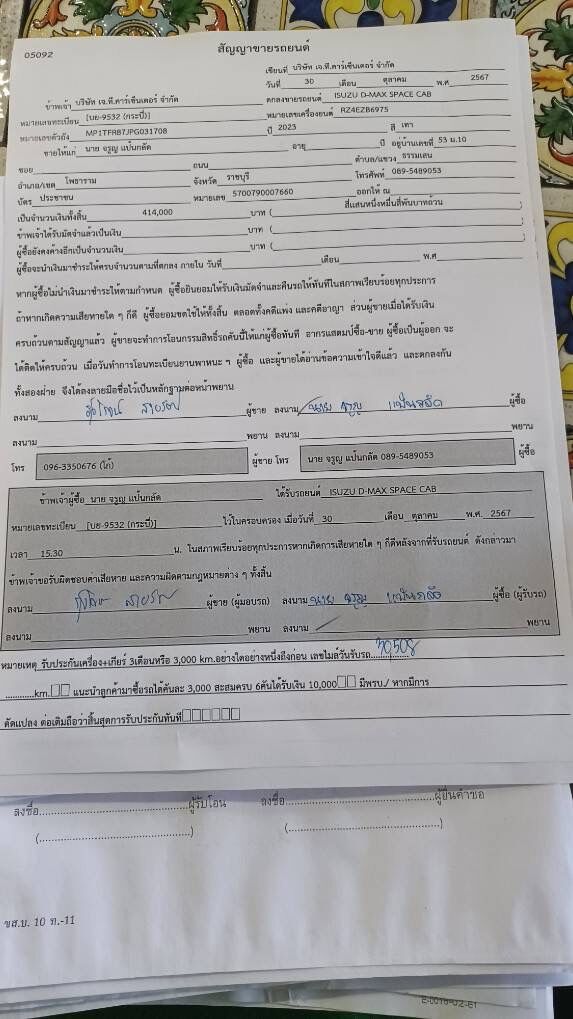 05092
สัญญาขายรถยนต์
เขียนที่ บริษัท เจ.ที.คาร์เซ็นเตอร์ จำกัด
วันที่ 30 เดือน ตุลาคม พ.ศ. 2567
ข้าพเจ้า บริษัท เจ.ที.คาร์เซ็นเตอร์ จำกัด ตกลงขายรถยนต์ ISUZU D-MAX SPACE CAB
หมายเลขทะเบียน [บย-9532 (กระบี่)] หมายเลขเครื่องยนต์ RZ4EZB6975
หมายเลขตัวถัง MP1TFR87JPG031708 ปี 2023 สี เทา
ขายให้แก่ นาย จรูญ แป้นกลัด อายุ ปี อยู่บ้านเลขที่ 53 ม.10
ซอย ถนน ตำบล/แขวง ธรรมเสน
อำเภอ/เขต โพธาราม จังหวัด ราชบุรี โทรศัพท์ 089-5489053
บัตร ประชาชน หมายเลข 5700790007660 ออกให้ ณ
เป็นจำนวนเงินทั้งสิ้น 414,000 บาท ( สี่แสนหนึ่งหมื่นสี่พันบาทถ้วน )
ข้าพเจ้าได้รับมัดจำแล้วเป็นเงิน บาท ( )
ผู้ซื้อยังคงค้างอีกเป็นจำนวนเงิน บาท ( )
ผู้ซื้อจะนำเงินมาชำระให้ครบจำนวนตามที่ตกลง ภายใน วันที่ เดือน พ.ศ.
หากผู้ซื้อไม่นำเงินมาชำระให้ตามกำหนด ผู้ซื้อยินยอมให้ริบเงินมัดจำและคืนรถให้ทันทีในสภาพเรียบร้อยทุกประการ
ถ้าหากเกิดความเสียหายใด ๆ ก็ดี ผู้ซื้อยอมชดใช้ให้ทั้งสิ้น ตลอดทั้งคดีแพ่ง และคดีอาญา ส่วนผู้ขายเมื่อได้รับเงิน
ครบถ้วนตามสัญญาแล้ว ผู้ขายจะทำการโอนกรรมสิทธิ์รถคันนี้ให้แก่ผู้ซื้อทันที อากรแสตมป์ซื้อ-ขาย ผู้ซื้อเป็นผู้ออก จะ
ได้ติดให้ครบถ้วน เมื่อวันทำการโอนทะเบียนยานพาหนะ ฯ ผู้ซื้อ และผู้ขายได้อ่านข้อความเข้าใจดีแล้ว และตกลงกัน
ทั้งสองฝ่าย จึงได้ลงลายมือชื่อไว้เป็นหลักฐานต่อหน้าพยาน
ลงนาม ผู้ขาย ลงนาม นาย จรูญ แป้นกลัด ผู้ซื้อ
ลงนาม พยาน ลงนาม พยาน
โทร 096-3350676 (ไก่) ผู้ขาย โทร นาย จรูญ แป้นกลัด 089-5489053 ผู้ซื้อ
ข้าพเจ้าผู้ซื้อ นาย จรูญ แป้นกลัด ได้รับรถยนต์ ISUZU D-MAX SPACE CAB
หมายเลขทะเบียน [บย-9532 (กระบี่)] ไว้ในครอบครอง เมื่อวันที่ 30 เดือน ตุลาคม พ.ศ. 2567
เวลา 15.30 น. ในสภาพเรียบร้อยทุกประการหากเกิดการเสียหายใด ๆ ก็ดีหลังจากที่รับรถยนต์ ดังกล่าวมา
ข้าพเจ้าขอรับผิดชอบค่าเสียหาย และความผิดตามกฎหมายต่าง ๆ ทั้งสิ้น
ลงนาม ผู้ขาย (ผู้มอบรถ) ลงนาม นาย จรูญ แป้นกลัด ผู้ซื้อ (ผู้รับรถ)
ลงนาม พยาน ลงนาม พยาน
หมายเหตุ รับประกันเครื่อง+เกียร์ 3เดือนหรือ 3,000 km.อย่างใดอย่างหนึ่งถึงก่อน เลขไมล์วันรับรถ 30508
............km.□□ แนะนำลูกค้ามาซื้อรถได้คันละ 3,000 สะสมครบ 6คันได้รับเงิน 10,000□□ มีพรบ./ หากมีการ
ดัดแปลง ต่อเติมถือว่าสิ้นสุดการรับประกันทันที□□□□□□
ลงชื่อ........................................ผู้รับโอน ลงชื่อ........................................ผู้ยื่นคำขอ
(........................................) (........................................)
ขส.บ. 10 ท.-11